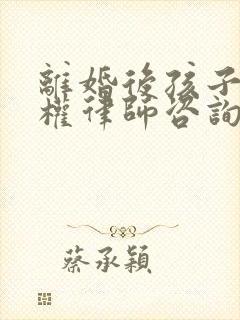 離婚後孩子
權律師咨詢
蔡承穎